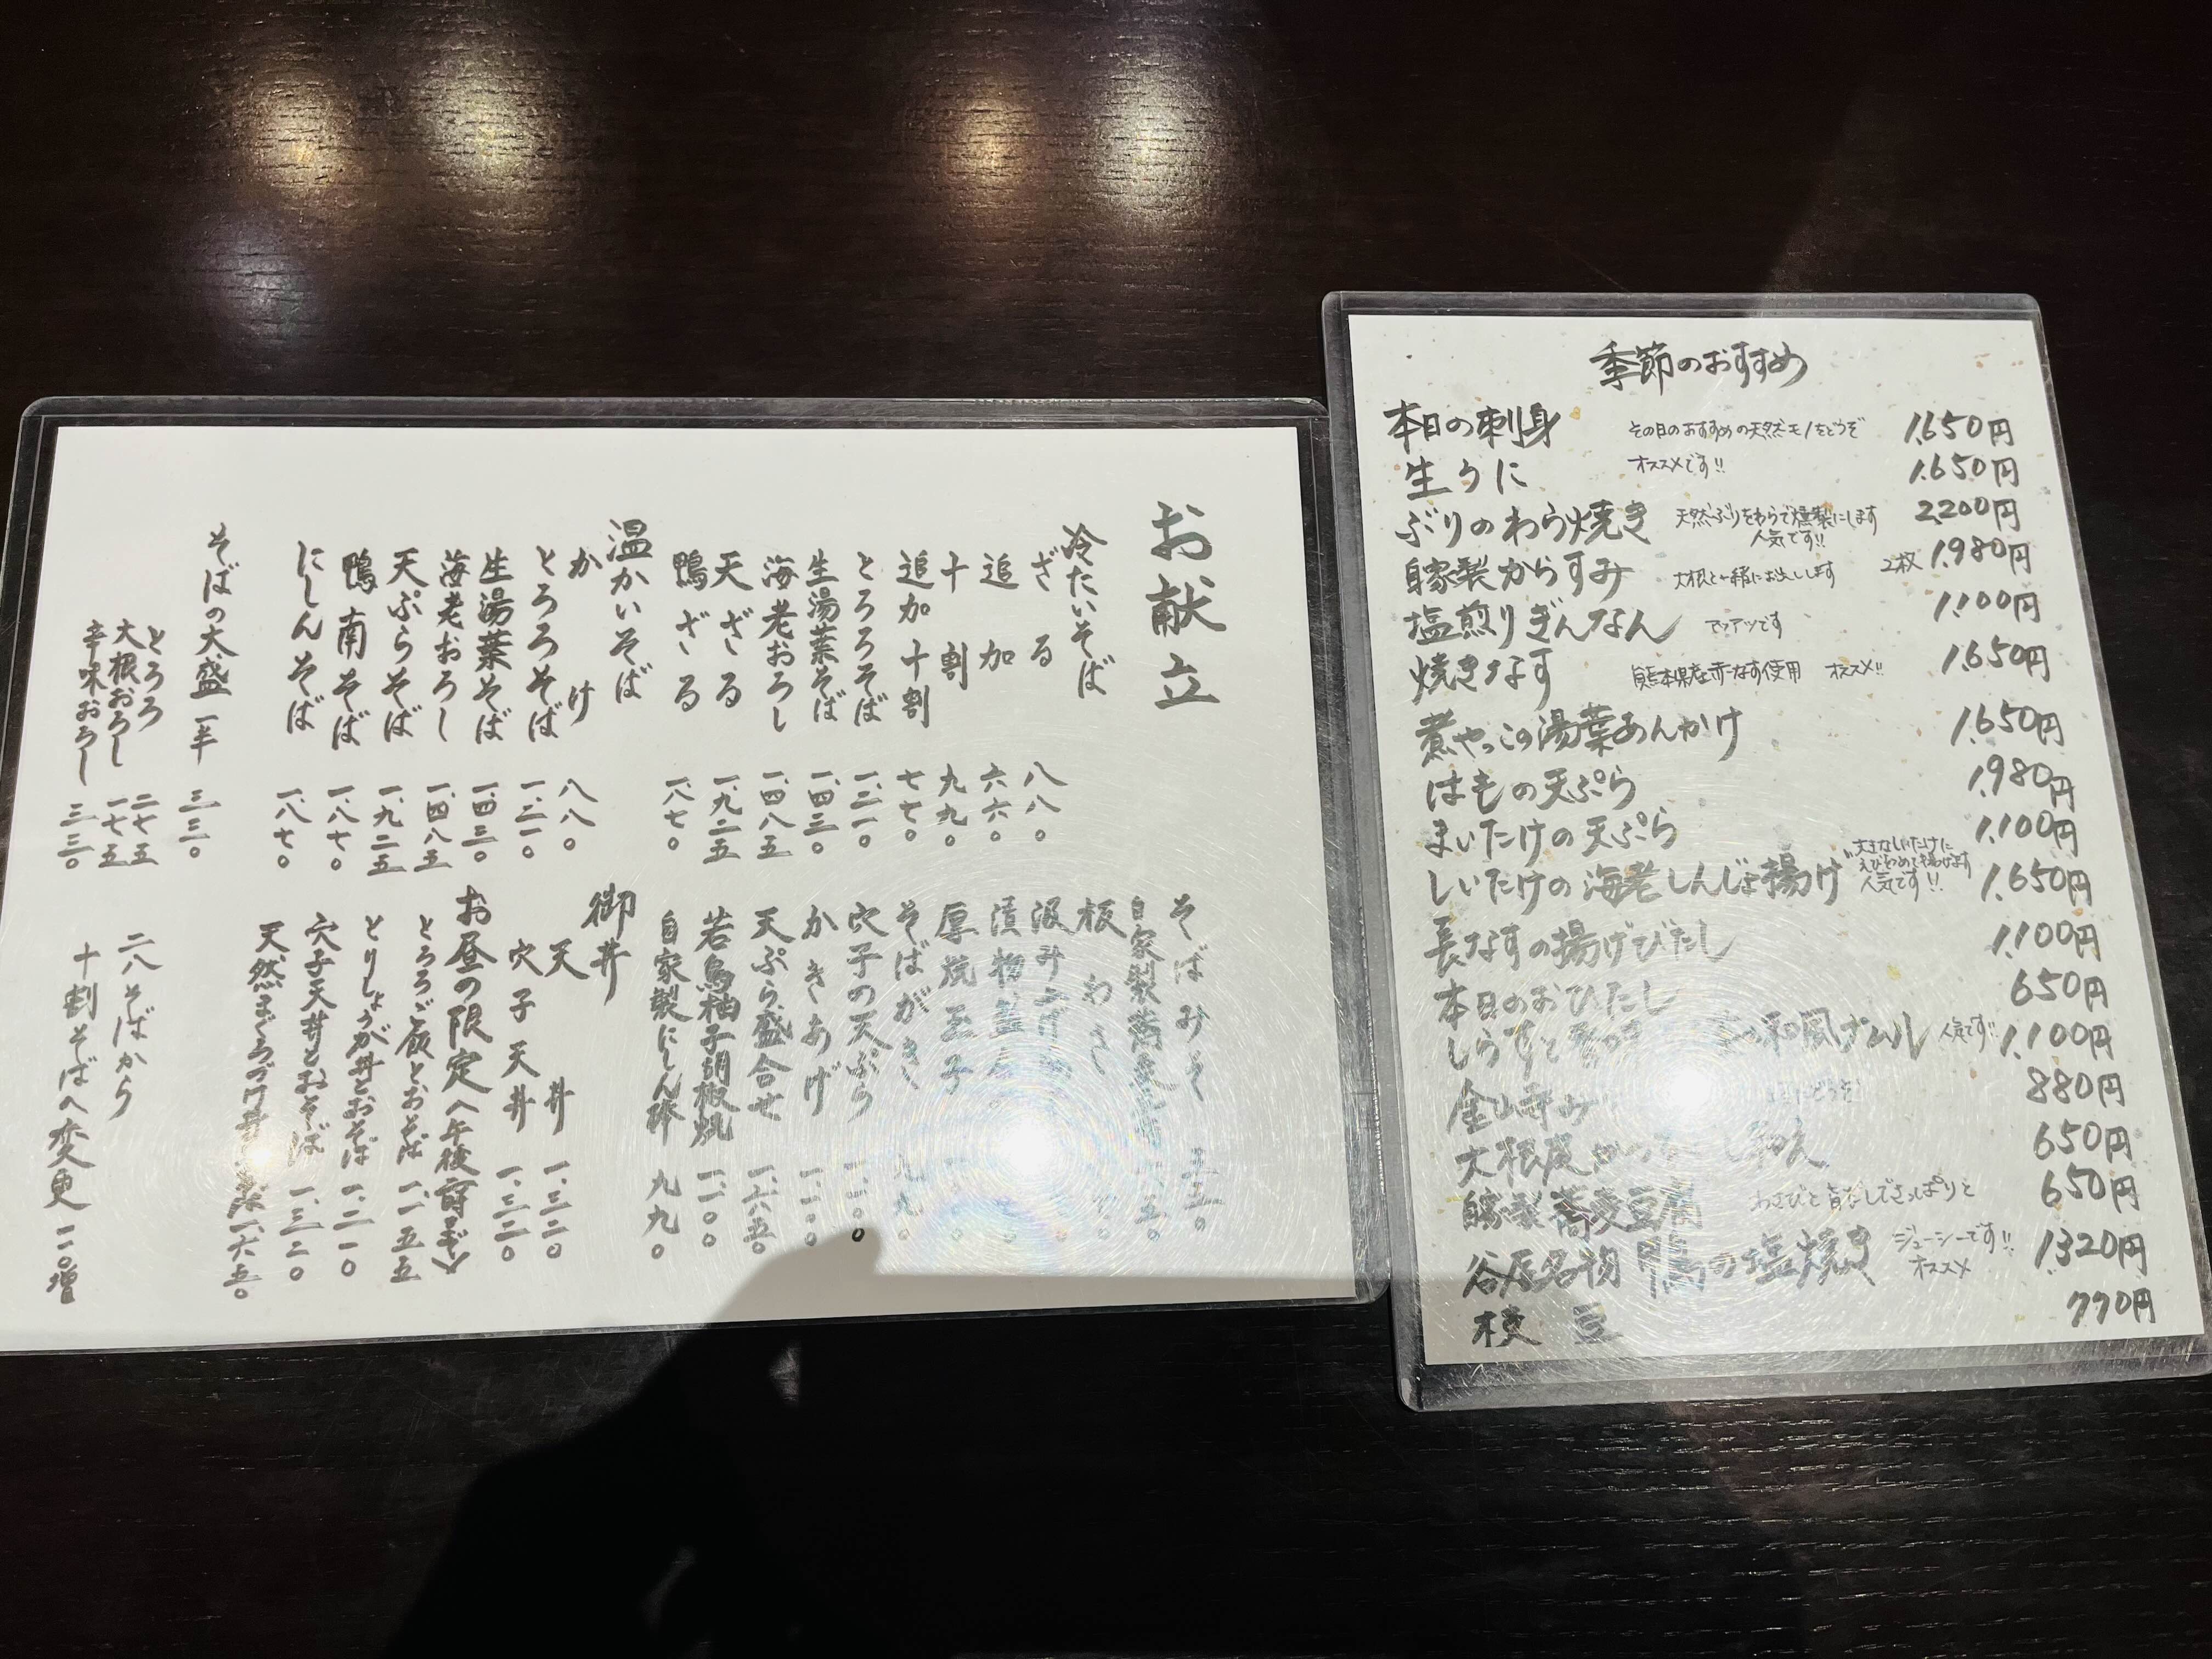 お献立
冷たいそば
ざる 八八〇
追加 六六〇
十割 九九〇
追加十割 七七〇
とろろそば 一、二一〇
生湯葉そば 一、四三〇
海老おろし 一、四八五
天ざる 一、九二五
鴨ざる 一、八七〇
温かいそば
かけ 八八〇
とろろそば 一、二一〇
生湯葉そば 一、四三〇
海老おろし 一、四八五
天ぷらそば 一、九二五
鴨南そば 一、八七〇
にしんそば 一、八七〇
そばの大盛 一半 三三〇
とろろ 二七五
大根おろし 一七五
辛味おろし 三三〇
そばみそ 五五〇
自家製
板わさ
汲み
漬物盛
厚焼玉子
そばがき 九九〇
穴子の天ぷら 一、一〇〇
かきあげ 一、一〇〇
天ぷら盛合せ 一、六五〇
若鳥柚子胡椒焼 一、一〇〇
自家製にしん棒 九九〇
御丼
天丼 一、三二〇
穴子天丼 一、三二〇
お昼の限定
とろろご飯とおそば 一、一五五
とりしょうが丼とおそば 一、二一〇
穴子天丼とおそば 一、三二〇
天然まぐろづけ丼 一、六五〇
二八そばから
十割そばへ変更 一一〇増
季節のおすすめ
本日の刺身 その日のおすすめの天然モノをどうぞ 1,650円
生うに オススメです!! 1,650円
ぶりのわら焼き 天然ぶりをわらで燻製にします 人気です!! 2,200円
自家製からすみ 大根と一緒にお出しします 2枚 1,980円
塩煎りぎんなん アツアツです 1,100円
焼きなす 熊本県産赤なす使用 オススメ!! 1,650円
煮やっこの湯葉あんかけ 1,650円
はもの天ぷら 1,980円
まいたけの天ぷら 1,100円
しいたけの海老しんじょ揚げ 大きなしいたけにえびをつめて揚げます 人気です!! 1,650円
長なすの揚げびたし 1,100円
本日のおひたし 650円
しらすと 和風ナムル 人気です!! 1,100円
金山寺み どうぞ 880円
大根 和え 650円
自家製蕎麦豆腐 わさびと旨だしでさっぱりと 650円
谷屋名物 鴨の塩焼き ジューシーです!! オススメ 1,320円
枝豆 770円